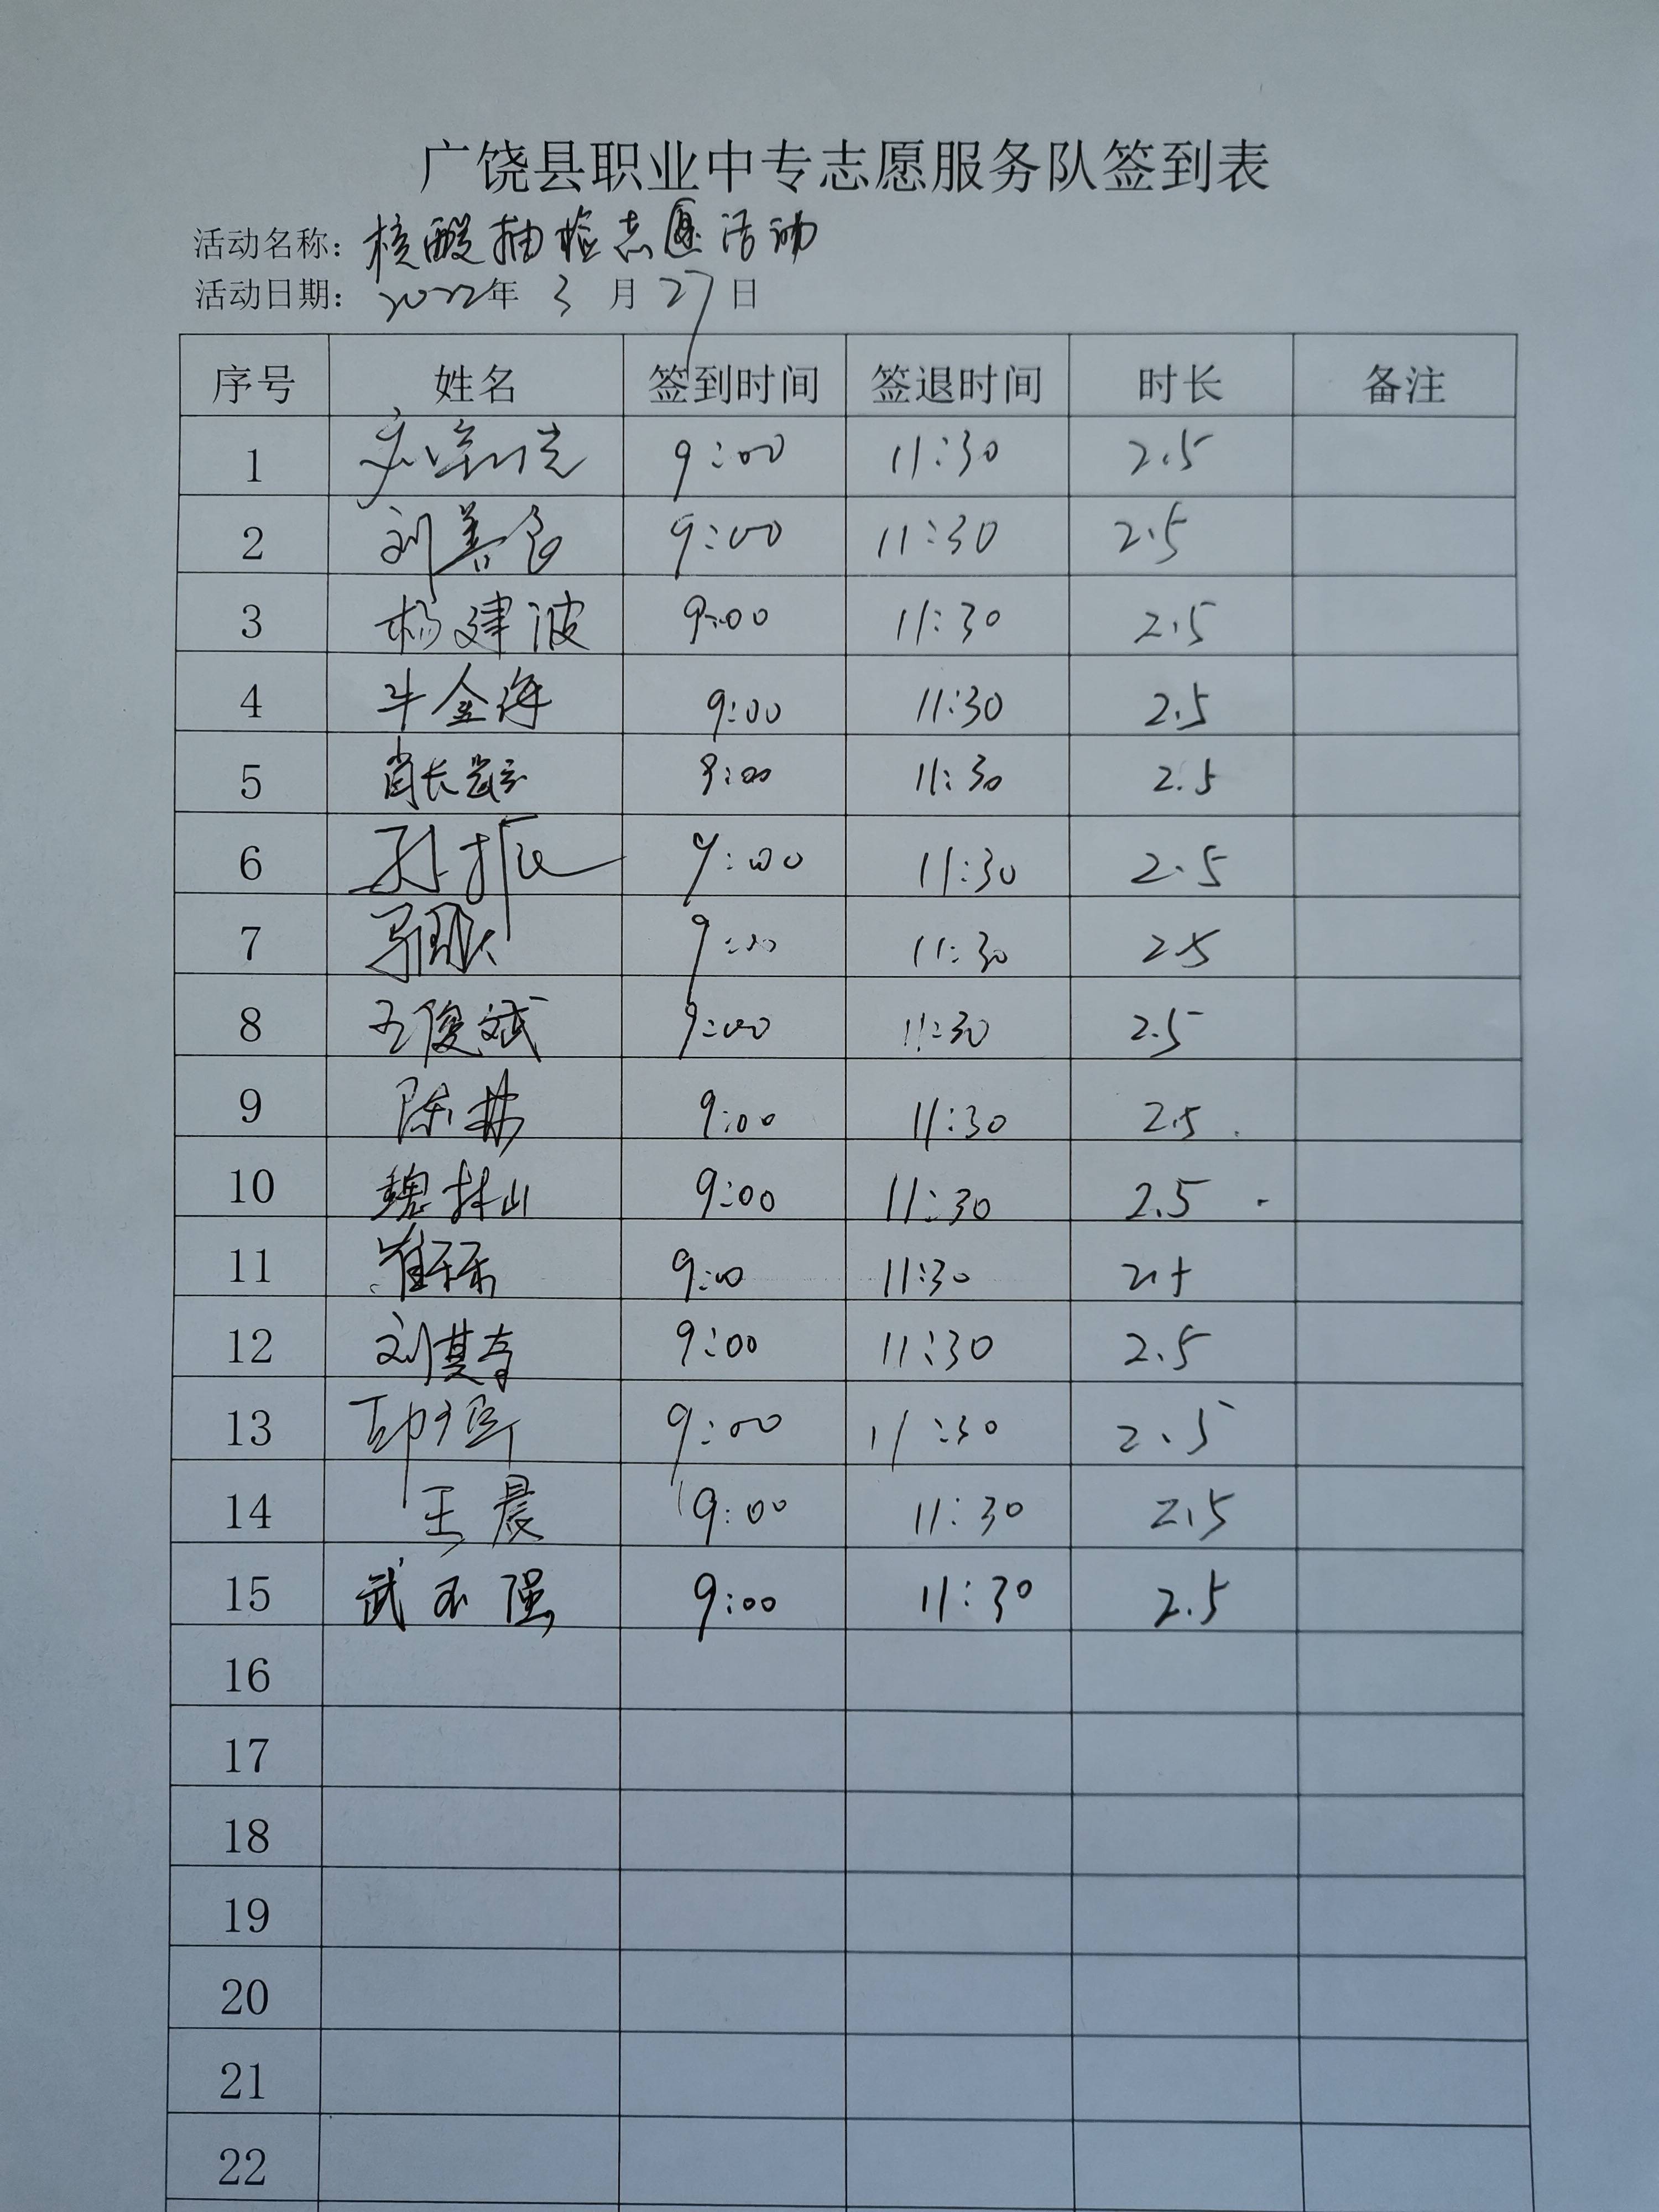 广饶县职业中专志愿服务队签到表
活动名称：核酸抽检志愿活动
活动日期：2022年 3 月 27 日
序号 姓名 签到时间 签退时间 时长 备注
1 9:00 11:30 2.5
2 刘善良 9:00 11:30 2.5
3 杨建波 9:00 11:30 2.5
4 牛金海 9:00 11:30 2.5
5 肖长 9:00 11:30 2.5
6 孙振 9:00 11:30 2.5
7 9:00 11:30 2.5
8 王俊斌 9:00 11:30 2.5
9 陈 9:00 11:30 2.5
10 魏林山 9:00 11:30 2.5
11 崔 9:00 11:30 2.5
12 刘其奇 9:00 11:30 2.5
13 9:00 11:30 2.5
14 王晨 9:00 11:30 2.5
15 武玉强 9:00 11:30 2.5
16
17
18
19
20
21
22